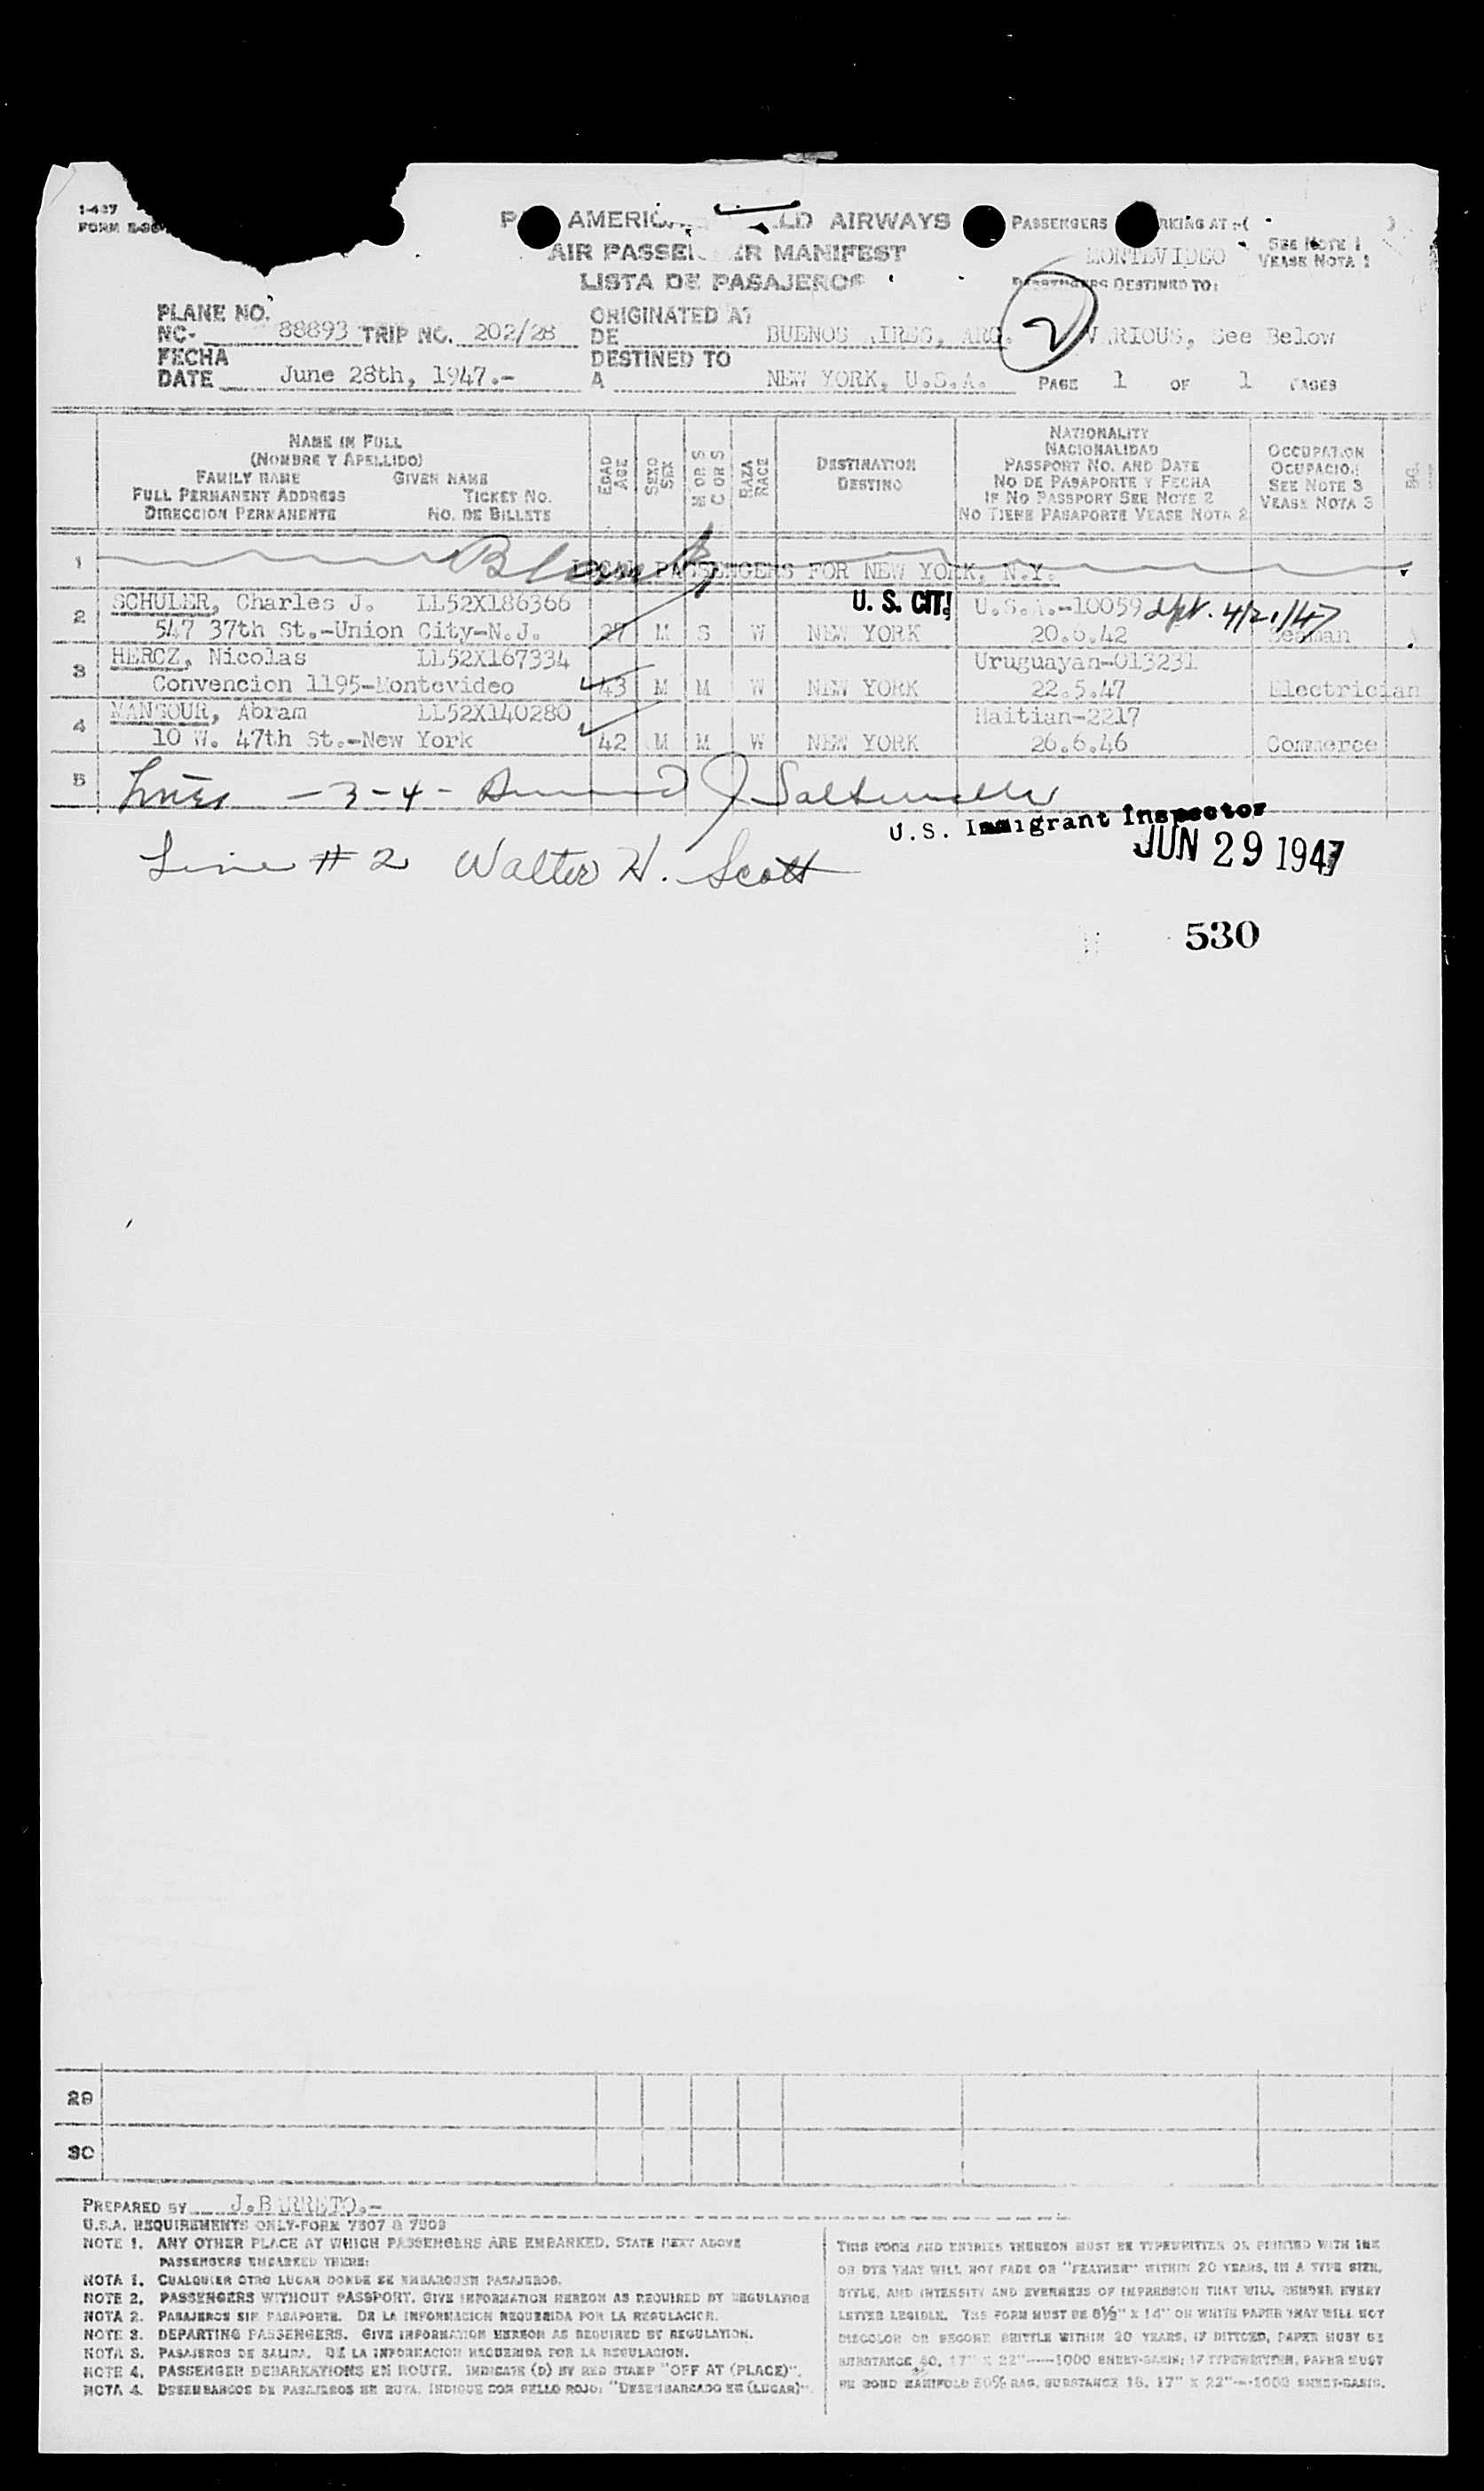 1-437
FORM
AMERIC LD AIRWAYS
AIR PASSEN ER MANIFEST
LISTA DE PASAJEROS
PASSENGERS RKING AT :-( )
MONTEVIDEO
SEE NOTE 1
VEASE NOTA 1
PASSENGERS DESTINED TO:
2
V RIOUS, See Below
PAGE 1 OF 1 PAGES
PLANE NO.
NC- 88893 TRIP NO. 202/28
FECHA
DATE June 28th, 1947.-
ORIGINATED AT
DE BUENOS AIRES, ARG.
DESTINED TO
A NEW YORK, U.S.A.
NAME IN FULL
(NOMBRE Y APELLIDO)
FAMILY NAME GIVEN NAME
FULL PERMANENT ADDRESS TICKET NO.
DIRECCION PERMANENTE NO. DE BILLETE
EDAD
AGE
SEXO
SEX
M OR S
C OR S
RAZA
RACE
DESTINATION
DESTINO
NATIONALITY
NACIONALIDAD
PASSPORT NO. AND DATE
NO DE PASAPORTE Y FECHA
IF NO PASSPORT SEE NOTE 2
NO TIENE PASAPORTE VEASE NOTA 2
OCCUPATION
OCUPACION
SEE NOTE 3
VEASE NOTA 3
1 Blank
LOCAL PASSENGERS FOR NEW YORK, N.Y.
2 SCHULER, Charles J. LL52X186366 U. S. CIT. U.S.A.-10059 dpt. 4/21/47
547 37th St.-Union City-N.J. 27 M S W NEW YORK 20.6.42 Seaman
3 HERCZ, Nicolas LL52X167334 Uruguayan-013231
Convencion 1195-Montevideo 43 M M W NEW YORK 22.5.47 Electrician
4 MANSOUR, Abram LL52X140280 Haitian-2217
10 W. 47th St.-New York 42 M M W NEW YORK 26.6.46 Commerce
5 Lines - 3 - 4 - J
U.S. Immigrant Inspector
JUN 29 1947
Line # 2 Walter H. Scott
530
29
30
PREPARED BY J.BARRETO.-
U.S.A. REQUIREMENTS ONLY-FORM 7507 & 7509
NOTE 1. ANY OTHER PLACE AT WHICH PASSENGERS ARE EMBARKED, STATE NEXT ABOVE
PASSENGERS EMBARKED THERE:
NOTA 1. CUALQUIER OTRO LUGAR DONDE SE EMBARQUEN PASAJEROS.
NOTE 2. PASSENGERS WITHOUT PASSPORT. GIVE INFORMATION HEREON AS REQUIRED BY REGULATION
NOTA 2. PASAJEROS SIN PASAPORTE. DE LA INFORMACION REQUERIDA POR LA REGULACION.
NOTE 3. DEPARTING PASSENGERS. GIVE INFORMATION HEREON AS REQUIRED BY REGULATION.
NOTA 3. PASAJEROS DE SALIDA. DE LA INFORMACION REQUERIDA POR LA REGULACION.
NOTE 4. PASSENGER DEBARKATIONS EN ROUTE. INDICATE (D) BY RED STAMP "OFF AT (PLACE)".
NOTA 4. DESEMBARCOS DE PASAJEROS EN RUTA. INDIQUE CON SELLO ROJO: "DESEMBARCADO EN (LUGAR)".
THIS FORM AND ENTRIES THEREON MUST BE TYPEWRITTEN OR PRINTED WITH INK
OR DYE THAT WILL NOT FADE OR "FEATHER" WITHIN 20 YEARS, IN A TYPE SIZE,
STYLE, AND INTENSITY AND EVENNESS OF IMPRESSION THAT WILL RENDER EVERY
LETTER LEGIBLE. THE FORM MUST BE 8½" X 14" ON WHITE PAPER THAT WILL NOT
DISCOLOR OR BECOME BRITTLE WITHIN 20 YEARS. IF DITTOED, PAPER MUST BE
SUBSTANCE 40, 17" X 22"----1000 SHEET-BASIS; IF TYPEWRITTEN, PAPER MUST
BE BOND MANIFOLD 50% RAG, SUBSTANCE 16, 17" X 22"---1000 SHEET-BASIS.